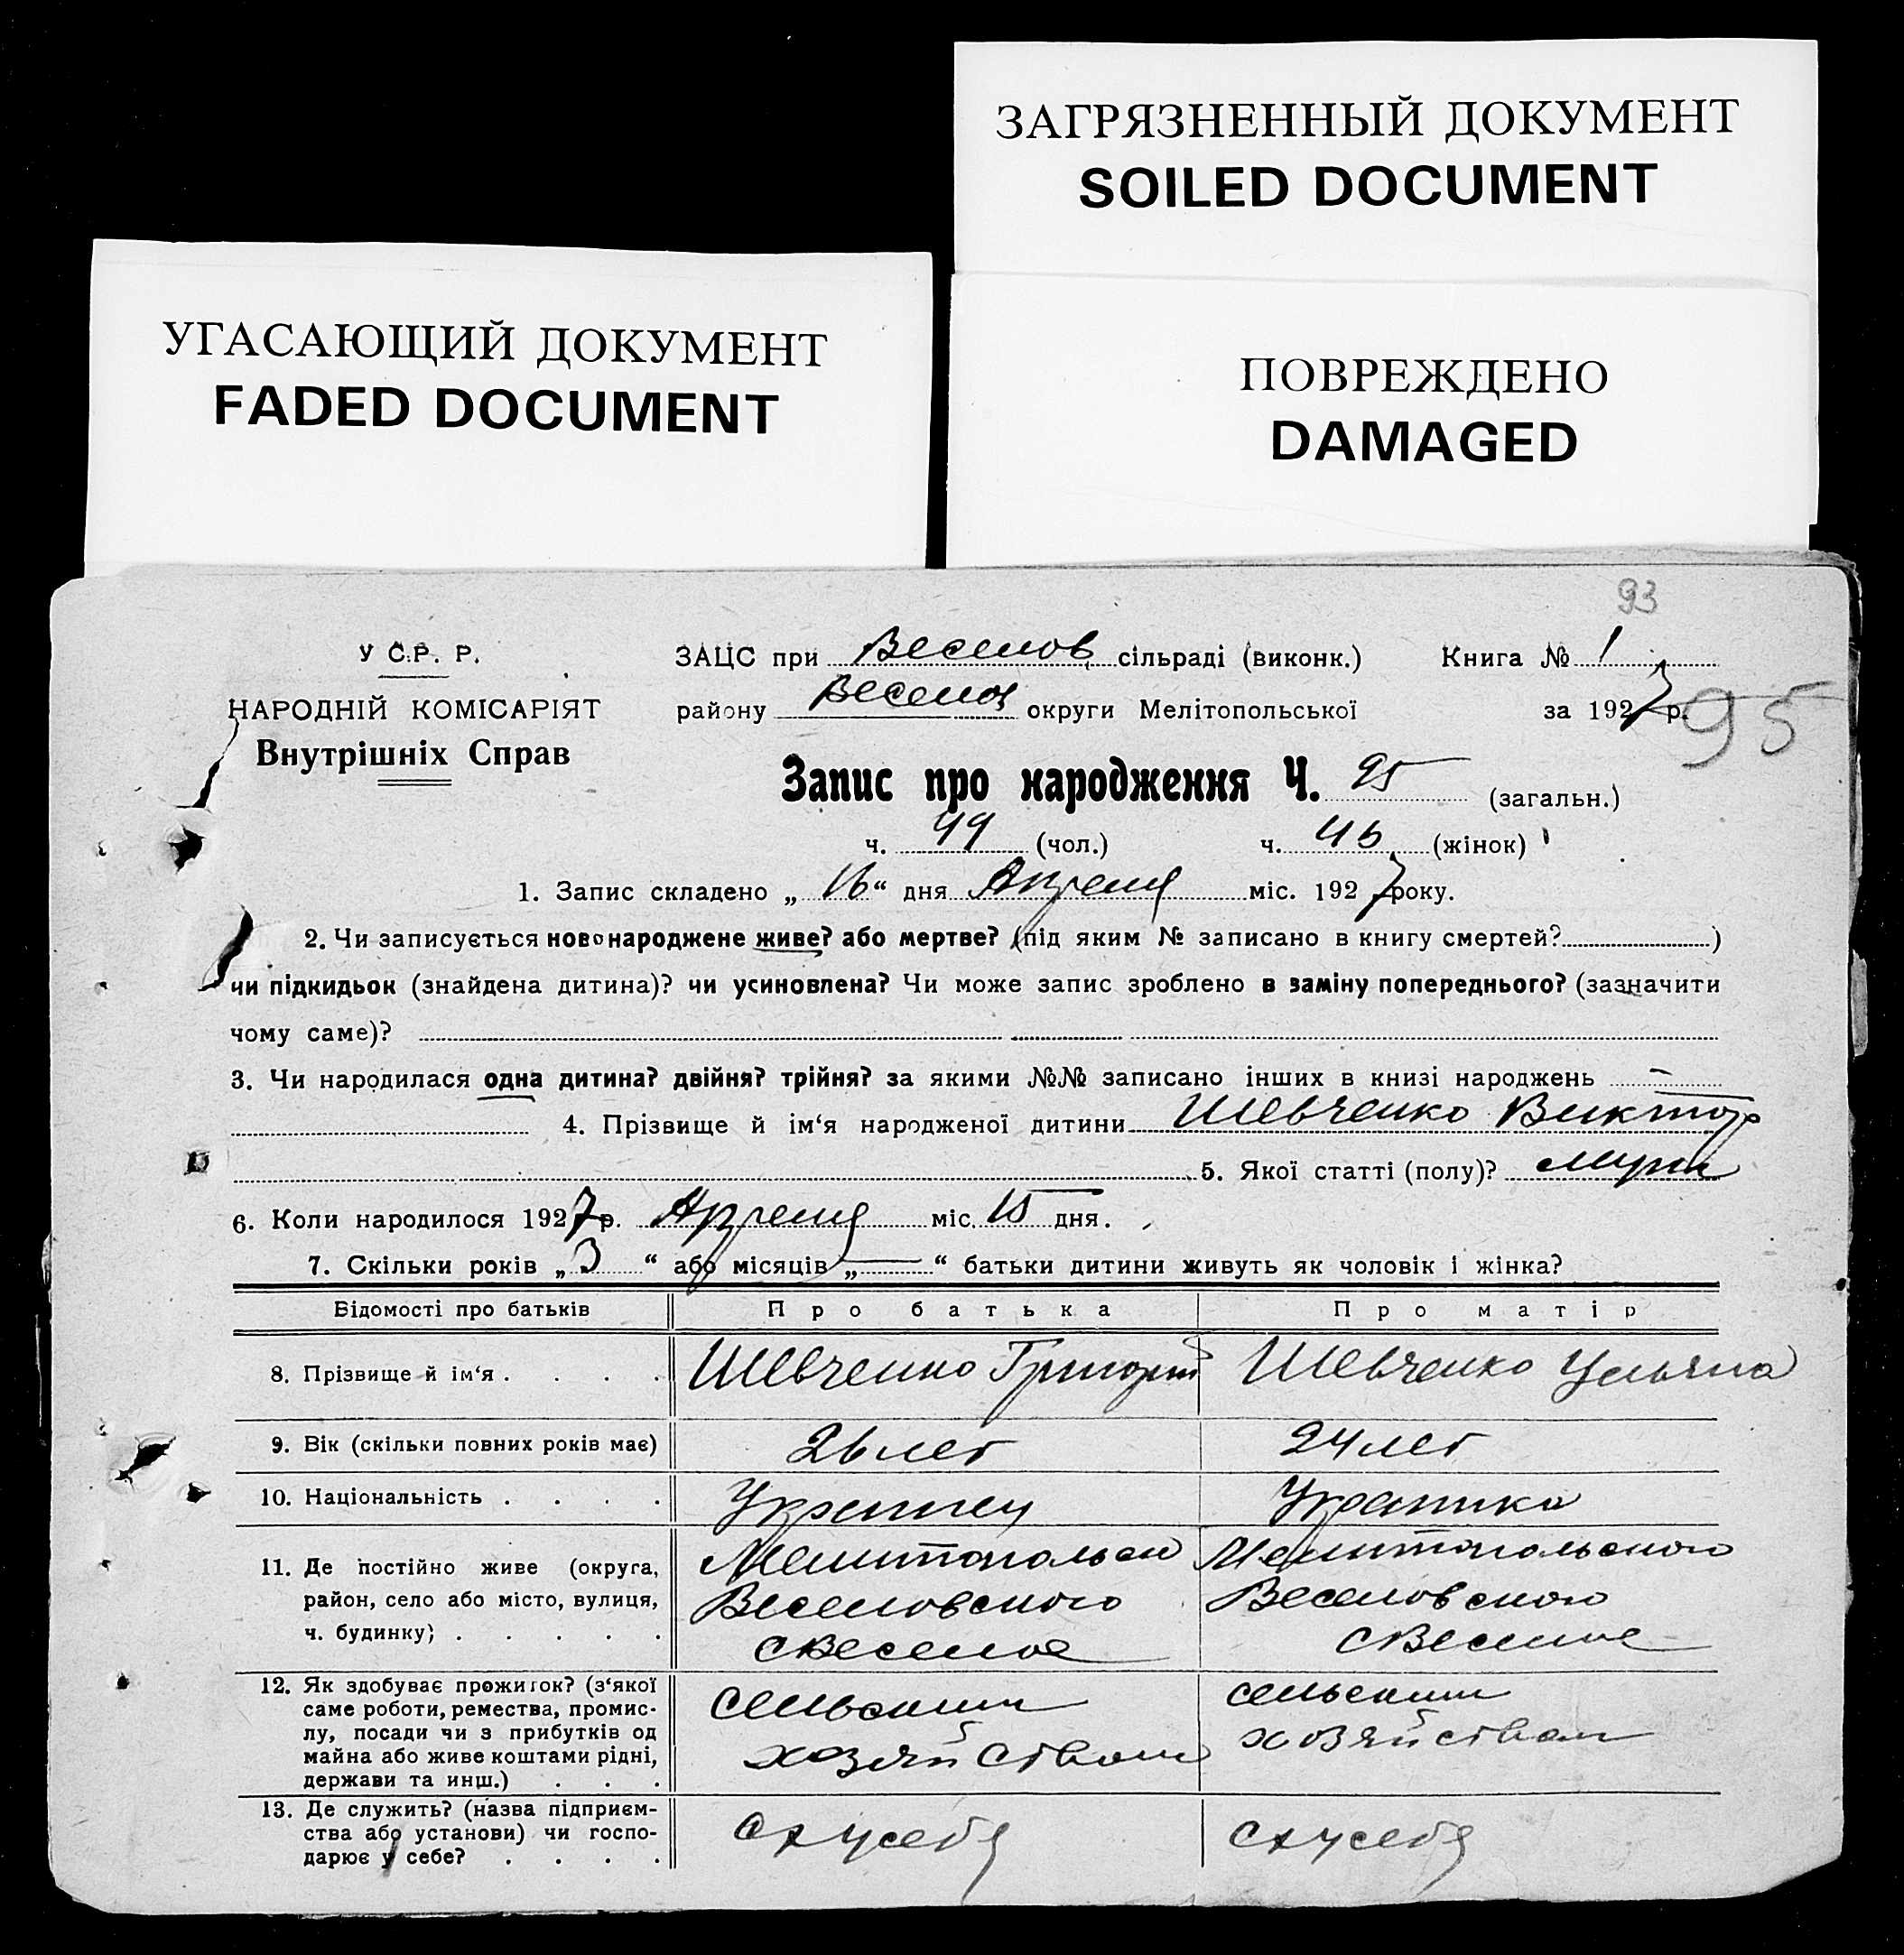 ЗАГРЯЗНЕННЫЙ ДОКУМЕНТ
SOILED DOCUMENT
УГАСАЮЩИЙ ДОКУМЕНТ
FADED DOCUMENT
ПОВРЕЖДЕНО
DAMAGED
93
У С.Р. Р.
НАРОДНІЙ КОМІСАРІЯТ
Внутрішніх Справ
ЗАЦС при Веселов сільраді (виконк.) Книга № 1
району Веселов округи Мелітопольської за 1927 р.
95
Запис про народження Ч. 95 (загальн.)
ч. 49 (чол.) ч. 46 (жінок)
1. Запис складено „ 16 “ дня Апреля міс. 1927 року.
2. Чи записується новонароджене живе? або мертве? (під яким № записано в книгу смертей? )
чи підкидьок (знайдена дитина)? чи усиновлена? Чи може запис зроблено в заміну попереднього? (зазначити
чому саме)?
3. Чи народилася одна дитина? двійня? трійня? за якими №№ записано інших в книзі народжень —
4. Прізвище й ім‘я народженої дитини Шевченко Виктор
5. Якої статті (полу)? муж
6. Коли народилося 1927 р. Апреля міс. 15 дня.
7. Скільки років „ 3 “ або місяців „ — “ батьки дитини живуть як чоловік і жінка?
Відомості про батьків Про батька Про матір
8. Прізвище й ім‘я . . . . Шевченко Григорий Шевченко Ульяна
9. Вік (скільки повних років має) 26 лет 24 лет
10. Національність . . . . Украинец Украинка
11. Де постійно живе (округа, Мелитопольск Мелитопольского
район, село або місто, вулиця, Веселовского Веселовского
ч. будинку) . . . . . с Веселое с Веселое
12. Як здобуває прожиток? (з‘якої
саме роботи, ремества, промис- сельским сельским
лу, посади чи з прибутків од
майна або живе коштами рідні, хозяйством хозяйством
держави та инш.) . . .
13. Де служить? (назва підприєм-
ства або установи) чи госпо- сх у себя сх у себя
дарює у себе? . . . .